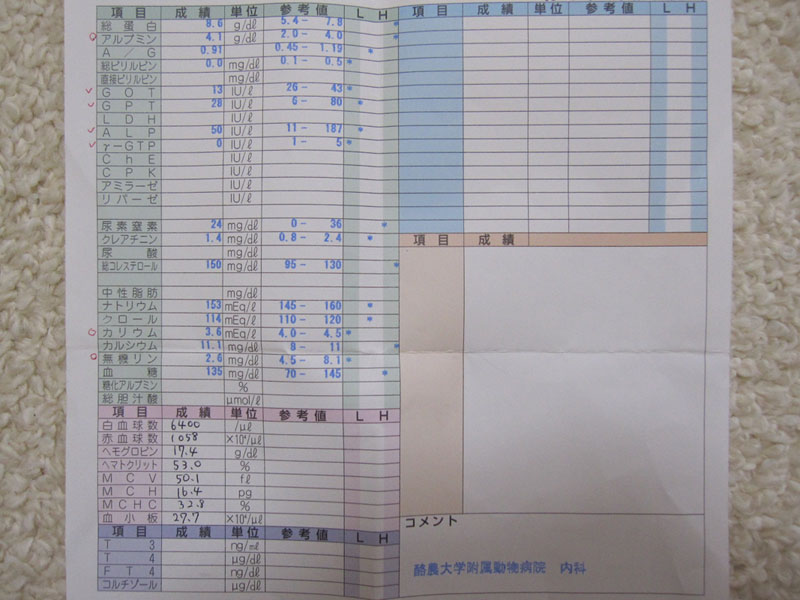 項目 成績 単位 参考値 L H
総蛋白 8.6 g/dl 5.4 - 7.8 *
アルブミン 4.1 g/dl 2.0 - 4.0 *
A / G 0.91 0.45 - 1.19 *
総ビリルビン 0.0 mg/dl 0.1 - 0.5 *
直接ビリルビン mg/dl
GOT 13 IU/l 26 - 43 *
GPT 28 IU/l 6 - 80 *
LDH IU/l
ALP 50 IU/l 11 - 187 *
γ-GTP 0 IU/l 1 - 5 *
ChE IU/l
CPK IU/l
アミラーゼ IU/l
リパーゼ IU/l
尿素窒素 24 mg/dl 0 - 36 *
クレアチニン 1.4 mg/dl 0.8 - 2.4 *
尿酸 mg/dl
総コレステロール 150 mg/dl 95 - 130 *
中性脂肪 mg/dl
ナトリウム 153 mEq/l 145 - 160 *
クロール 114 mEq/l 110 - 120 *
カリウム 3.6 mEq/l 4.0 - 4.5 *
カルシウム 11.1 mg/dl 8 - 11 *
無機リン 2.6 mg/dl 4.5 - 8.1 *
血糖 135 mg/dl 70 - 145 *
糖化アルブミン %
総胆汁酸 μmol/l
項目 成績 単位 参考値 L H
白血球数 6400 /μl
赤血球数 1058 ×10⁴/μl
ヘモグロビン 17.4 g/dl
ヘマトクリット 53.0 %
MCV 50.1 fl
MCH 16.4 pg
MCHC 32.8 %
血小板 29.7 ×10⁴/μl
項目 成績 単位 参考値 L H
T3 ng/ml
T4 μg/dl
FT4 ng/dl
コルチゾール μg/dl
項目 成績 単位 参考値 L H
項目 成績
コメント
酪農大学附属動物病院 内科